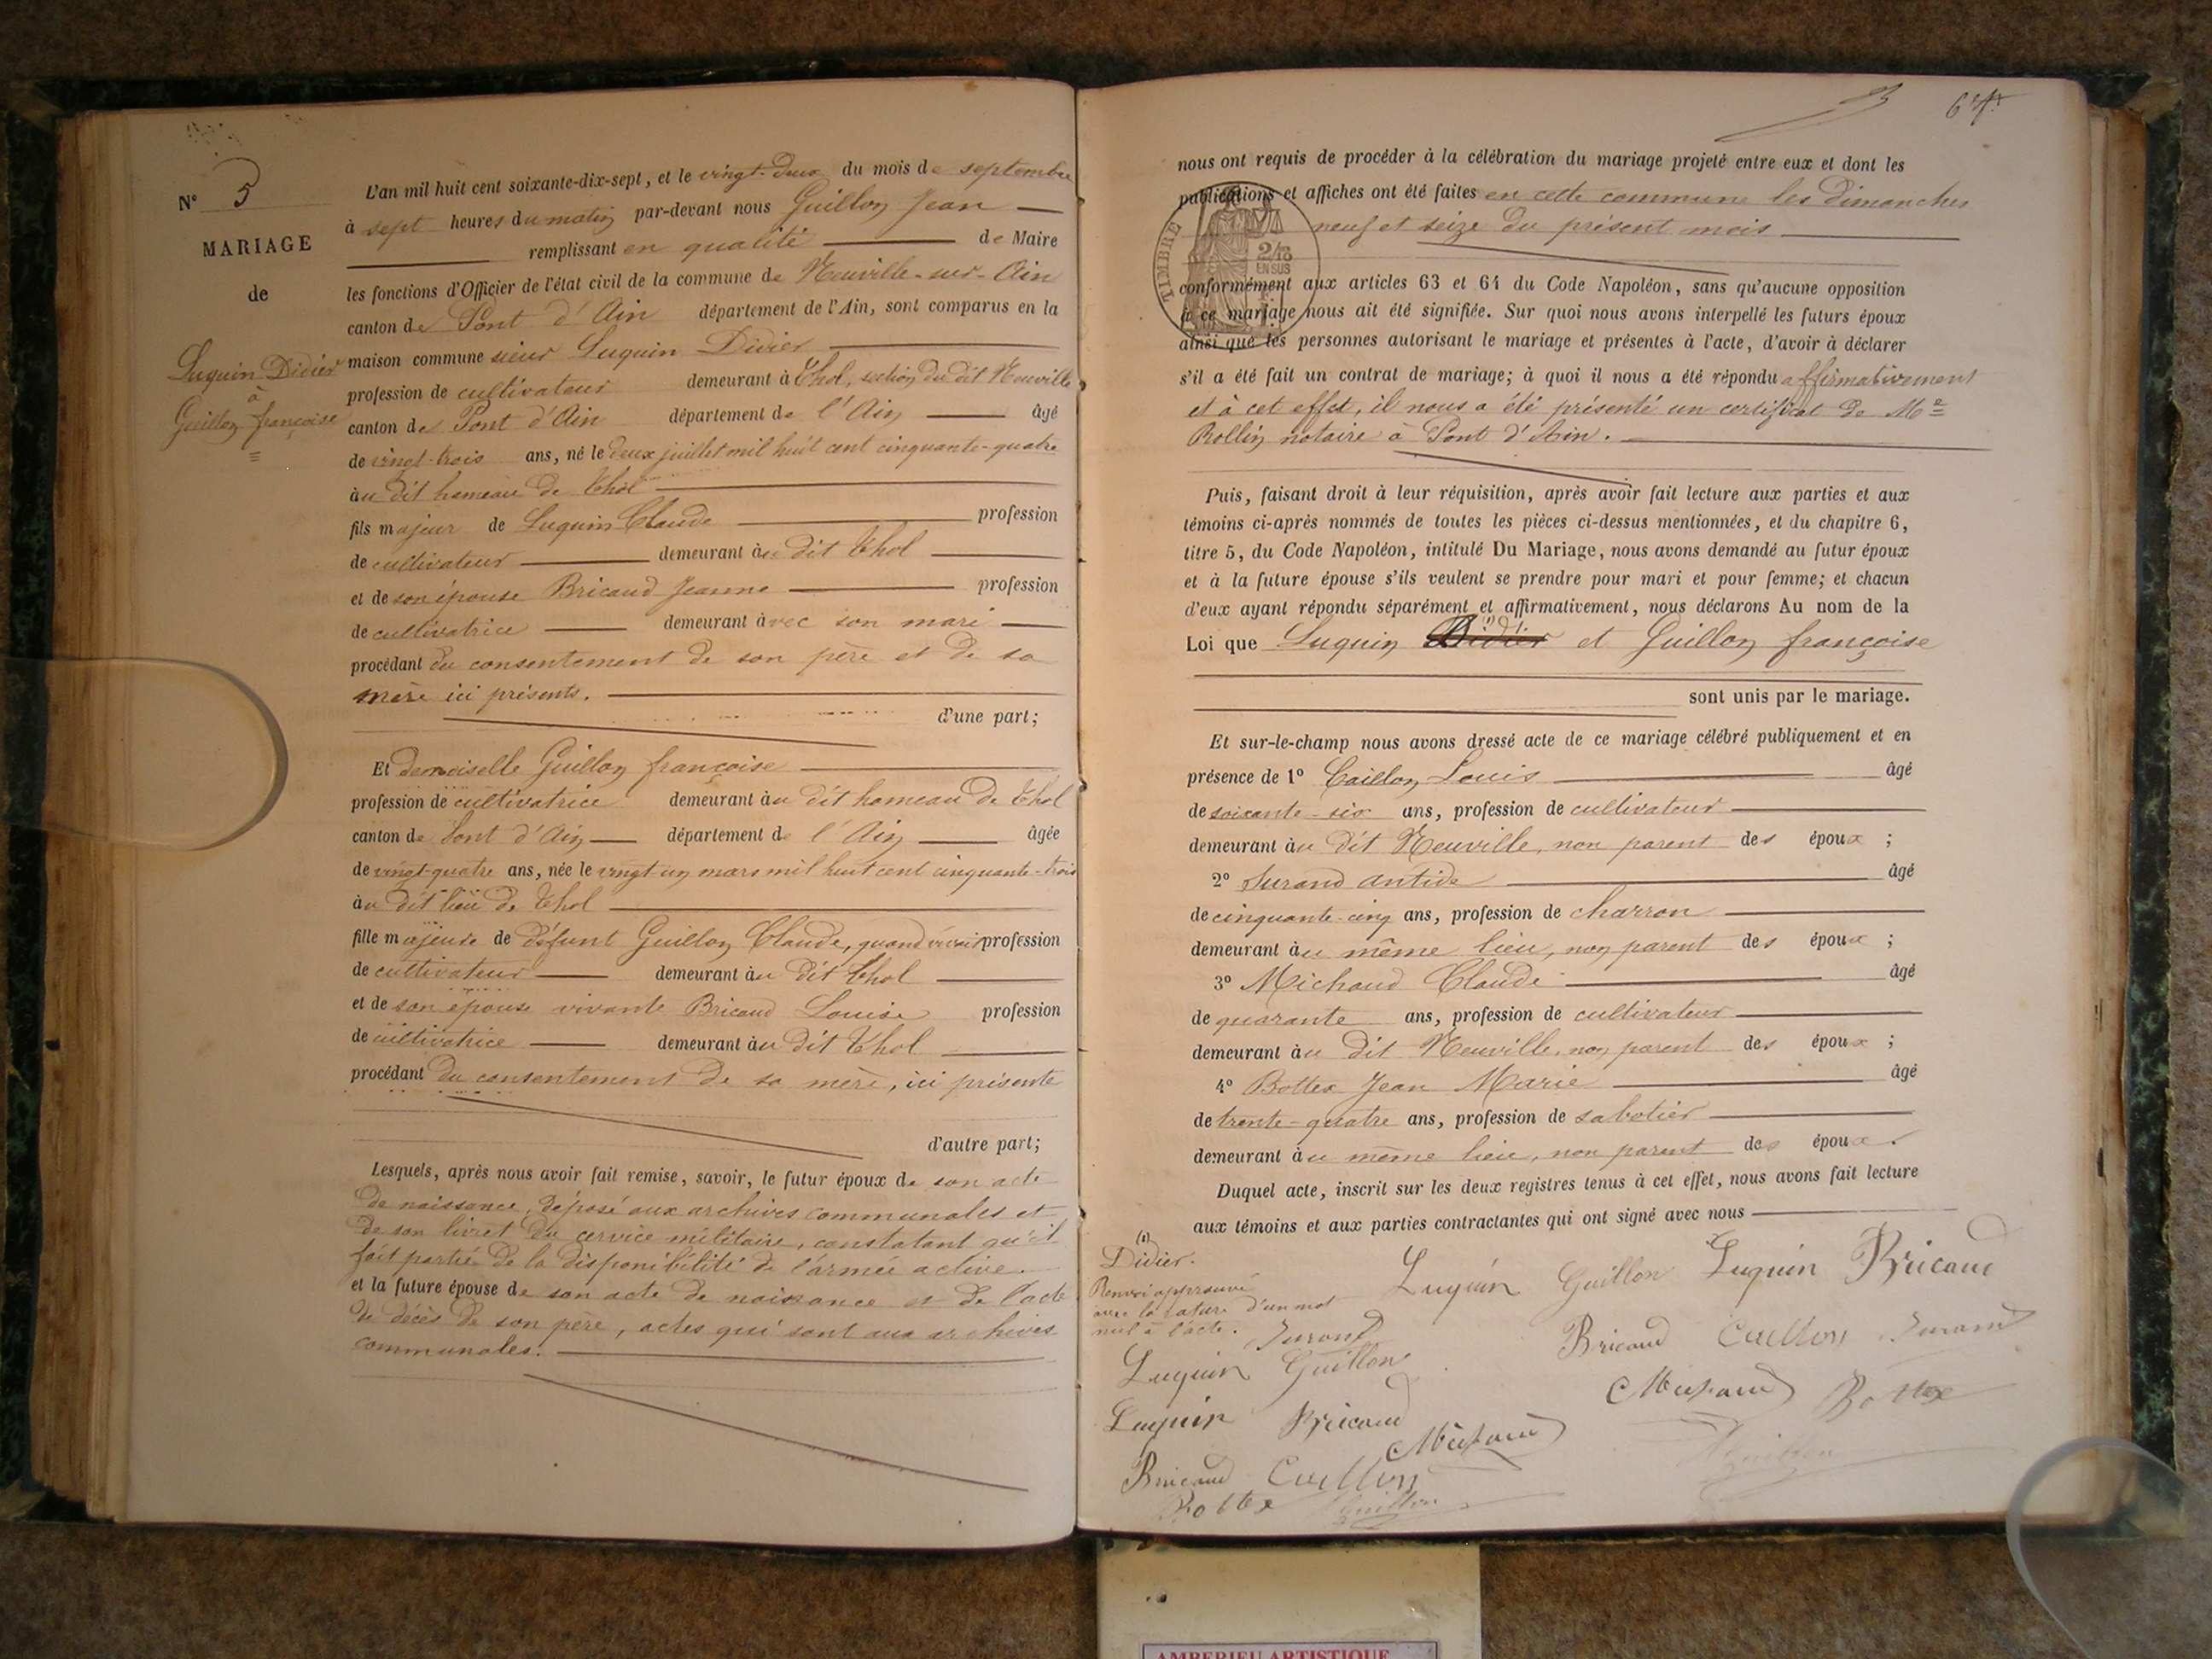 N° 5
MARIAGE
de
Luquin Didier
à
Guillon françoise
L'an mil huit cent soixante-dix-sept, et le vingt-deux du mois de septembre
à sept heures du matin par-devant nous Guillon Jean
remplissant en qualité de Maire
les fonctions d'Officier de l'état civil de la commune de Neuville-sur-Ain
canton de Pont d'Ain département de l'Ain, sont comparus en la
maison commune sieur Luquin Didier
profession de cultivateur demeurant à Thol, section du dit Neuville,
canton de Pont d'Ain département de l'Ain âgé
de vingt-trois ans, né le deux juillet mil huit cent cinquante-quatre
au dit hameau de Thol
fils majeur de Luquin Claude profession
de cultivateur demeurant au dit Thol
et de son épouse Bricaud Jeanne profession
de cultivatrice demeurant avec son mari
procédant du consentement de son père et de sa
mère ici présents.
d'une part;
Et demoiselle Guillon françoise
profession de cultivatrice demeurant au dit hameau de Thol
canton de Pont d'Ain département de l'Ain âgée
de vingt-quatre ans, née le vingt-un mars mil huit cent cinquante-trois
au dit lieu de Thol
fille majeure de défunt Guillon Claude, quand vivait profession
de cultivateur demeurant au dit Thol
et de son épouse vivante Bricaud Louise profession
de cultivatrice demeurant au dit Thol
procédant du consentement de sa mère, ici présente
d'autre part;
Lesquels, après nous avoir fait remise, savoir, le futur époux de son acte
de naissance, déposé aux archives communales et
de son livret du service militaire, constatant qu'il
fait partie de la disponibilité de l'armée active.
et la future épouse de son acte de naissance et de l'acte
de décès de son père, actes qui sont aux archives
communales.
nous ont requis de procéder à la célébration du mariage projeté entre eux et dont les
publications et affiches ont été faites en cette commune les Dimanches
neuf et seize du présent mois
TIMBRE
2/10
EN SUS
conformément aux articles 63 et 64 du Code Napoléon, sans qu'aucune opposition
à ce mariage nous ait été signifiée. Sur quoi nous avons interpellé les futurs époux
ainsi que les personnes autorisant le mariage et présentes à l'acte, d'avoir à déclarer
s'il a été fait un contrat de mariage; à quoi il nous a été répondu affirmativement
et à cet effet, il nous a été présenté un certificat de Me
Rollin notaire à Pont d'Ain.
Puis, faisant droit à leur réquisition, après avoir fait lecture aux parties et aux
témoins ci-après nommés de toutes les pièces ci-dessus mentionnées, et du chapitre 6,
titre 5, du Code Napoléon, intitulé Du Mariage, nous avons demandé au futur époux
et à la future épouse s'ils veulent se prendre pour mari et pour femme; et chacun
d'eux ayant répondu séparément et affirmativement, nous déclarons Au nom de la
Loi que Luquin Didier et Guillon françoise
sont unis par le mariage.
Et sur-le-champ nous avons dressé acte de ce mariage célébré publiquement et en
présence de 1° Caillon Louis âgé
de soixante-six ans, profession de cultivateur
demeurant au dit Neuville, non parent des époux ;
2° Jurand Antide âgé
de cinquante-cinq ans, profession de charron
demeurant au même lieu, non parent des époux ;
3° Michaud Claude âgé
de quarante ans, profession de cultivateur
demeurant au dit Neuville, non parent des époux ;
4° Bottex Jean Marie âgé
de trente-quatre ans, profession de sabotier
demeurant au même lieu, non parent des époux.
Duquel acte, inscrit sur les deux registres tenus à cet effet, nous avons fait lecture
aux témoins et aux parties contractantes qui ont signé avec nous
(1)
Didier.
Renvoi approuvé
avec la rature d'un mot
nul à l'acte.
Luquin Guillon Luquin Bricaud
Bricaud Caillon Jurand
Michaud Bottex
Guillon
Jurand
Luquin Guillon
Luquin Bricaud
Michaud
Bricaud Caillon
Bottex Guillon
AMBERIEU ARTISTIQUE